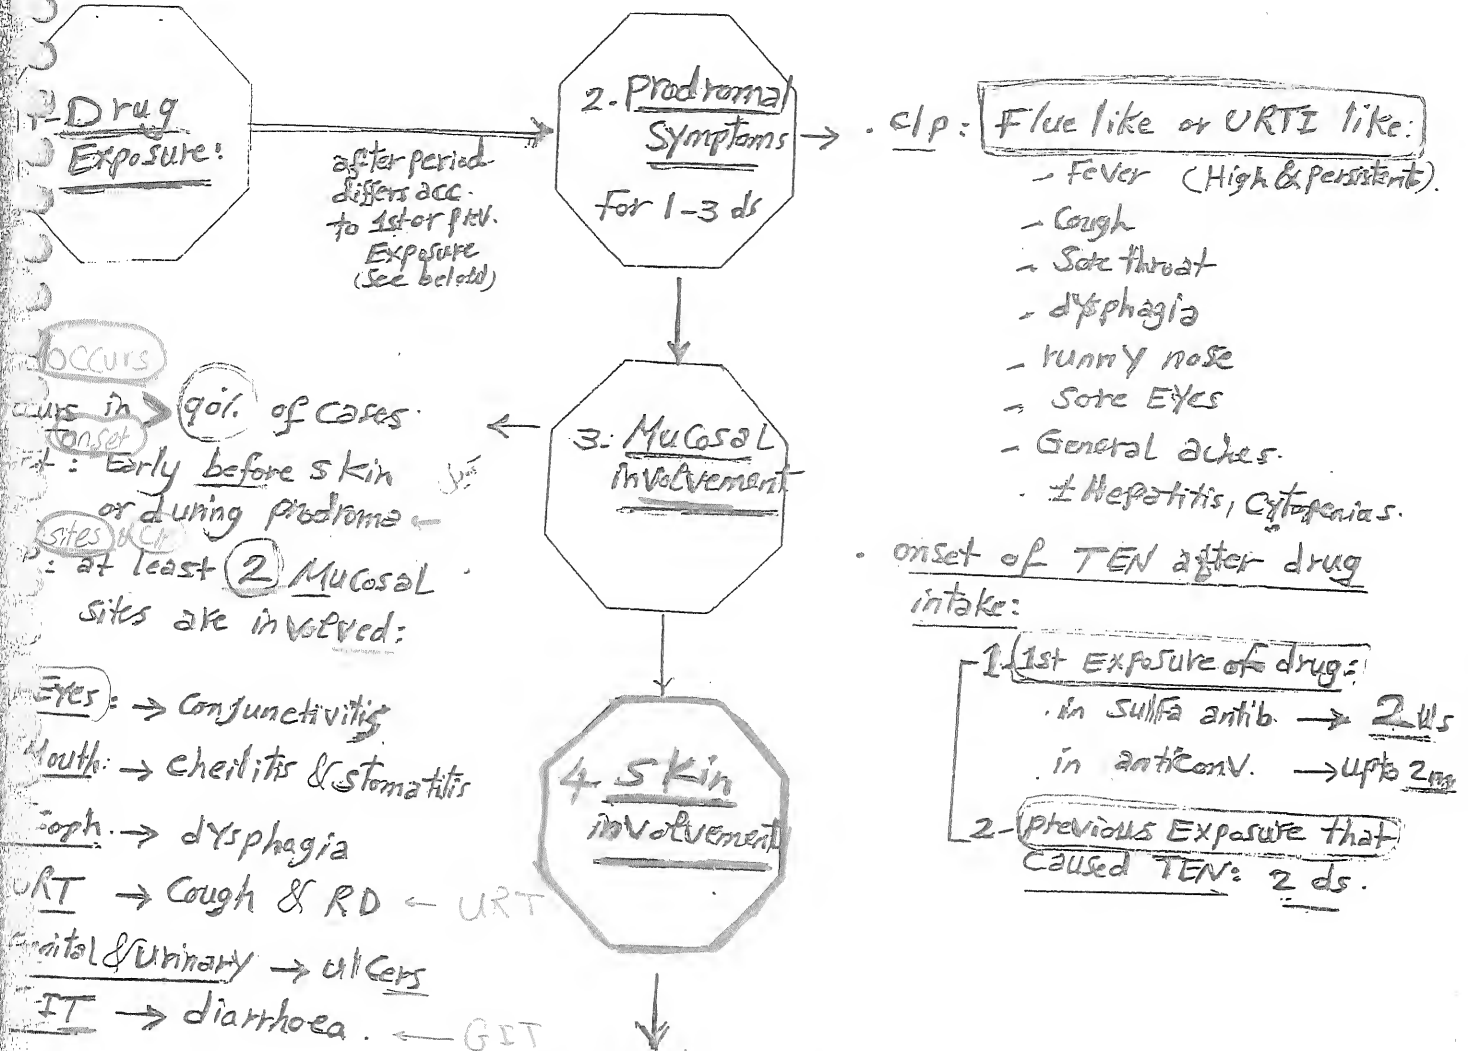 1-Drug
Exposure:
after period
differs acc.
to 1st or prev.
Exposure
(See below)
2. Prodromal
Symptoms
For 1-3 ds
. c/p: Flue like or URTI like:
- Fever (High & persistent).
- Cough
- Sore throat
- dysphagia
- runny nose
- Sore EYes
- General aches.
. ± Hepatitis, Cytopenias.
. onset of TEN after drug
intake:
1. 1st Exposure of drug:
. in Sulfa antib. → 2 ws
. in anticonv. → upto 2 ms
2- previous Exposure that
Caused TEN: 2 ds.
3. Mucosal
involvement
occurs
occurs in > 90% of cases.
onset
: Early before skin
or during prodroma ←
sites
: at least 2 Mucosal
sites are involved:
Eyes: → Conjunctivitis
Mouth: → cheilitis & stomatitis
Esoph. → dysphagia
URT → Cough & RD ← URT
Genital & Urinary → ulcers
GIT → diarrhoea. ← GIT
4- Skin
involvement